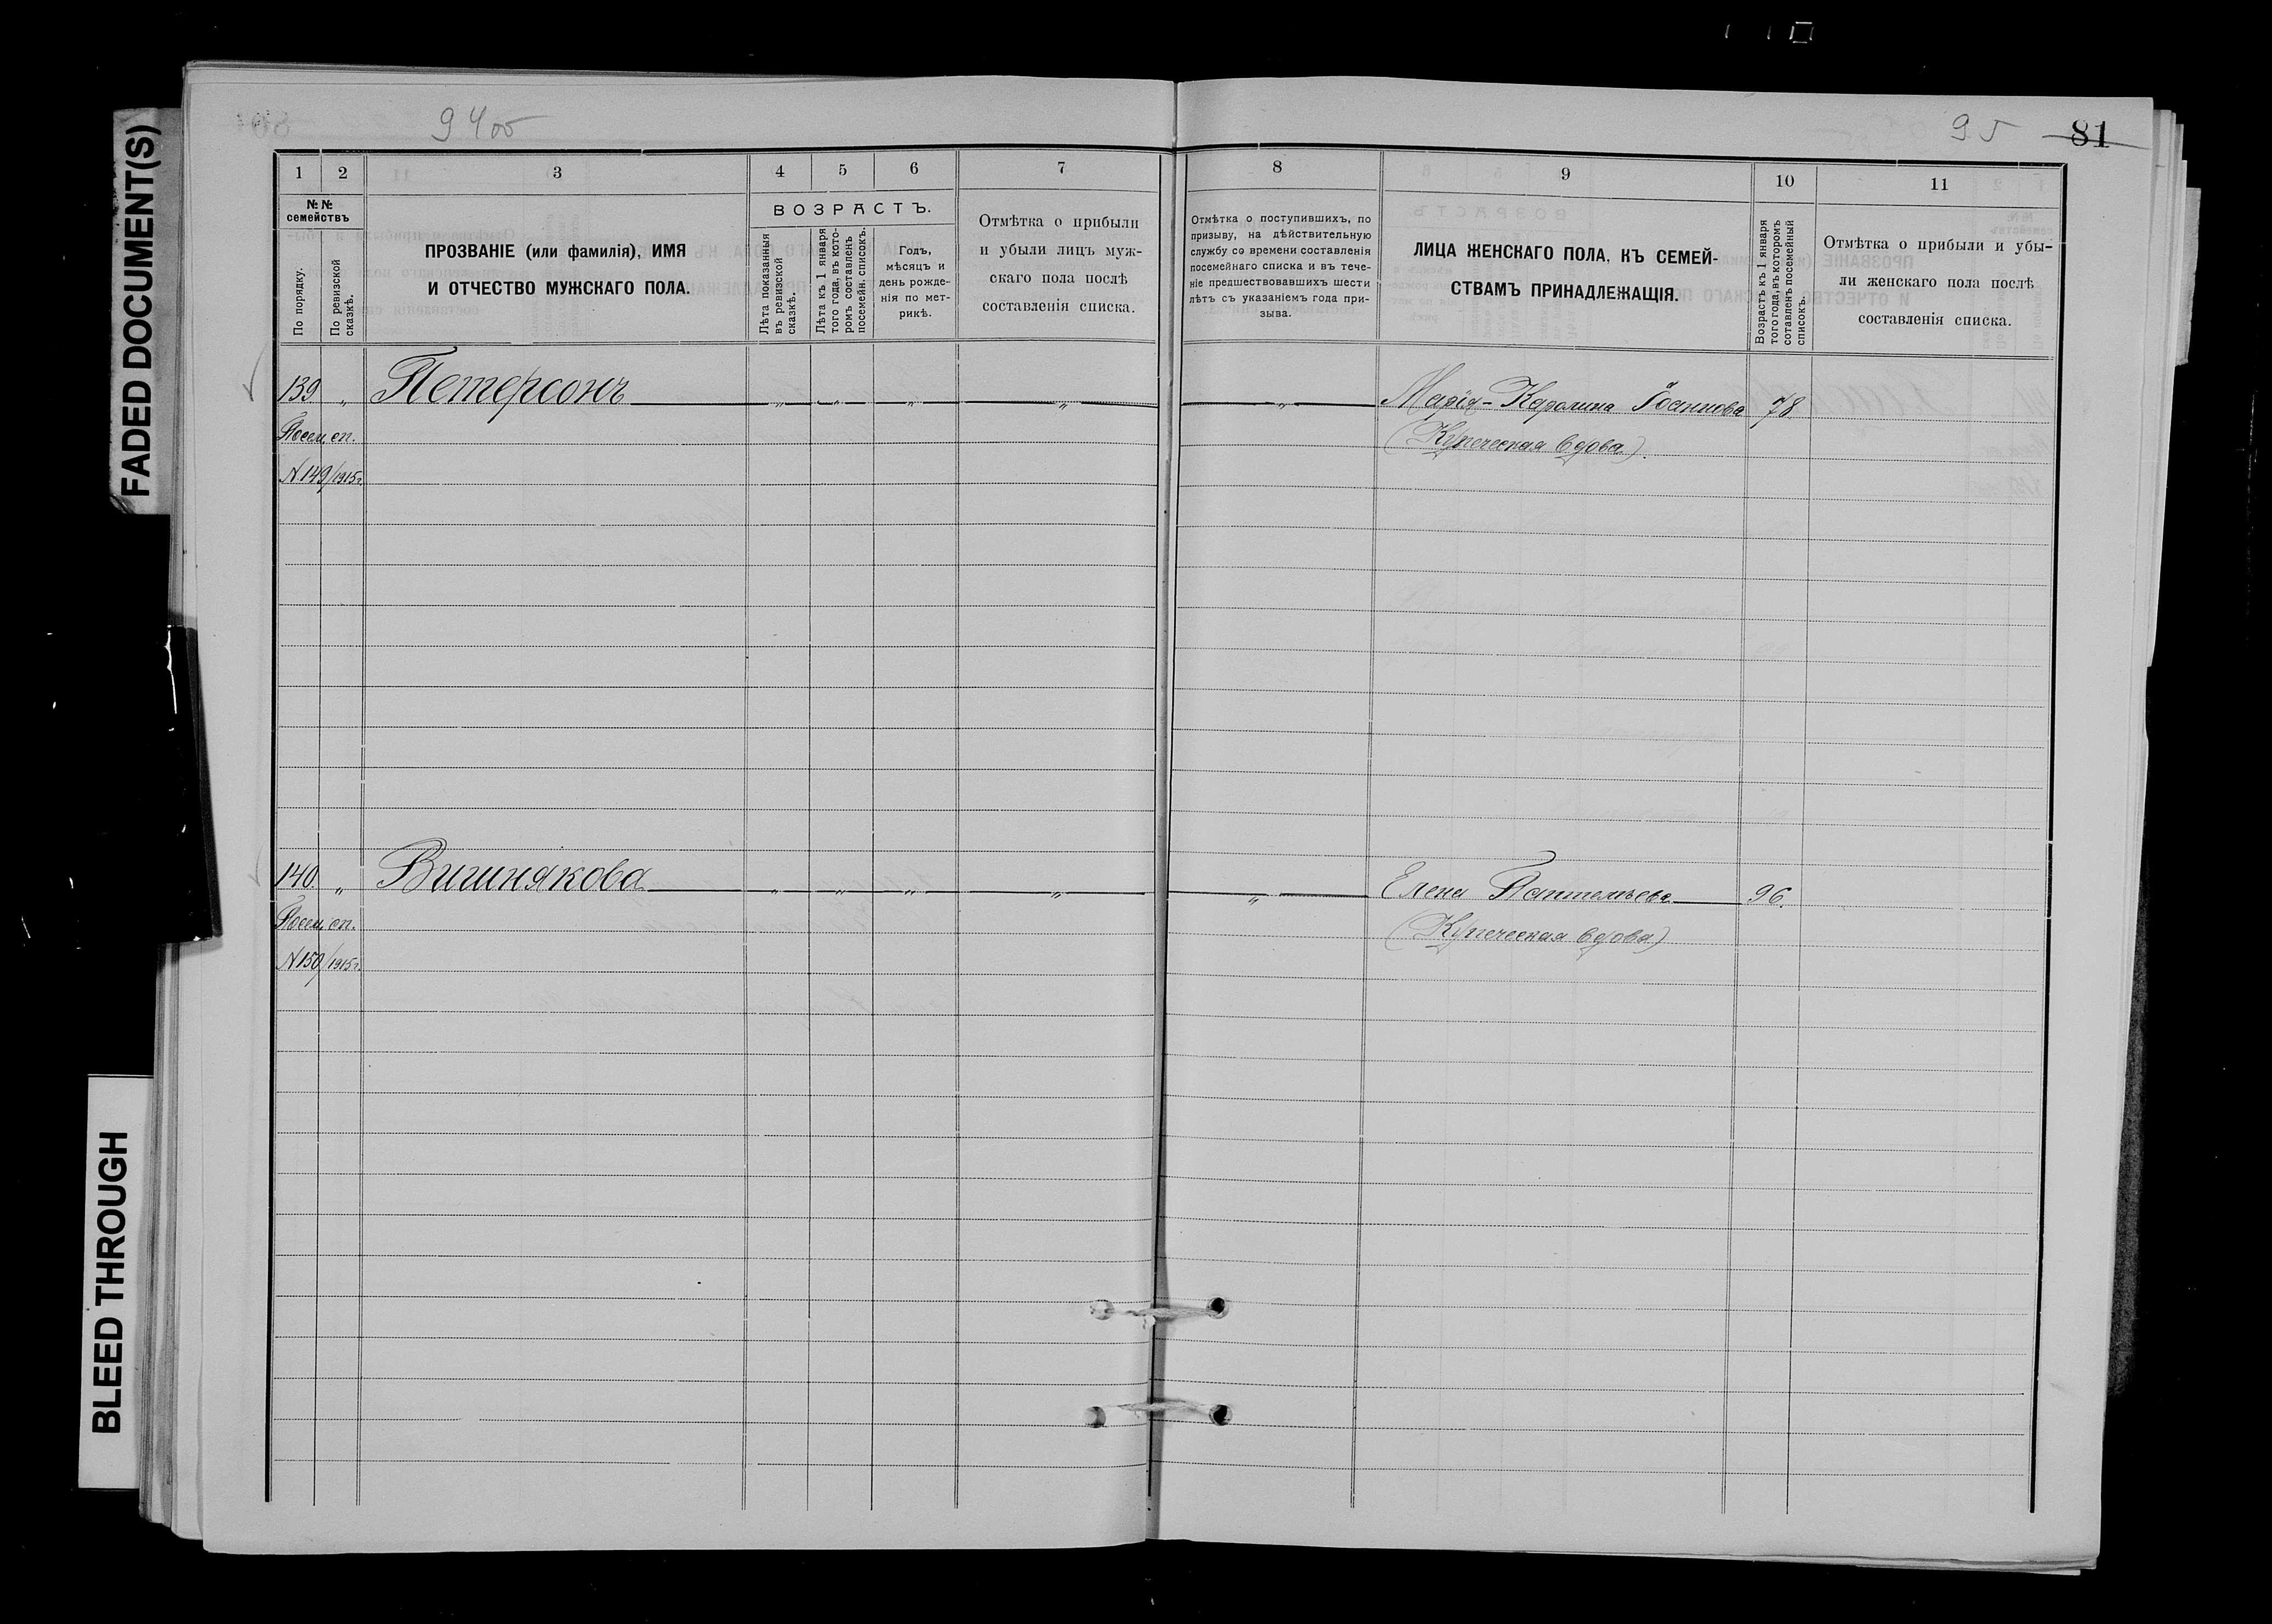 FADED DOCUMENT(S)
BLEED THROUGH
94об
95
81
1 2 3 4 5 6 7
№№ семействъ
По порядку.
По ревизской сказкѣ.
ПРОЗВАНІЕ (или фамилія), ИМЯ
И ОТЧЕСТВО МУЖСКАГО ПОЛА.
ВОЗРАСТЪ.
Лѣта показанныя
въ ревизской
сказкѣ.
Лѣта къ 1 января
того года, въ кото-
ромъ составленъ
посемейн. списокъ.
Годъ,
мѣсяцъ и
день рожде-
нія по мет-
рикѣ.
Отмѣтка о прибыли
и убыли лицъ муж-
скаго пола послѣ
составленія списка.
8 9 10 11
Отмѣтка о поступившихъ, по
призыву, на дѣйствительную
службу со времени составленія
посемейнаго списка и въ тече-
ніе предшествовавшихъ шести
лѣтъ съ указаніемъ года при-
зыва.
ЛИЦА ЖЕНСКАГО ПОЛА, КЪ СЕМЕЙ-
СТВАМЪ ПРИНАДЛЕЖАЩІЯ.
Возрастъ къ 1 января
того года, въ которомъ
составленъ посемейный
списокъ.
Отмѣтка о прибыли и убы-
ли женскаго пола послѣ
составленія списка.
139. „ Петерсонъ „ „ „ „ „ Марія-Каролина Іоаннова 78
Посем. сп. (Купеческая вдова).
№149/1915г.
140. „ Вишнякова „ „ „ „ „ Елена Пантельева 96.
Посем. сп. (Купеческая вдова)
№150/1915г.